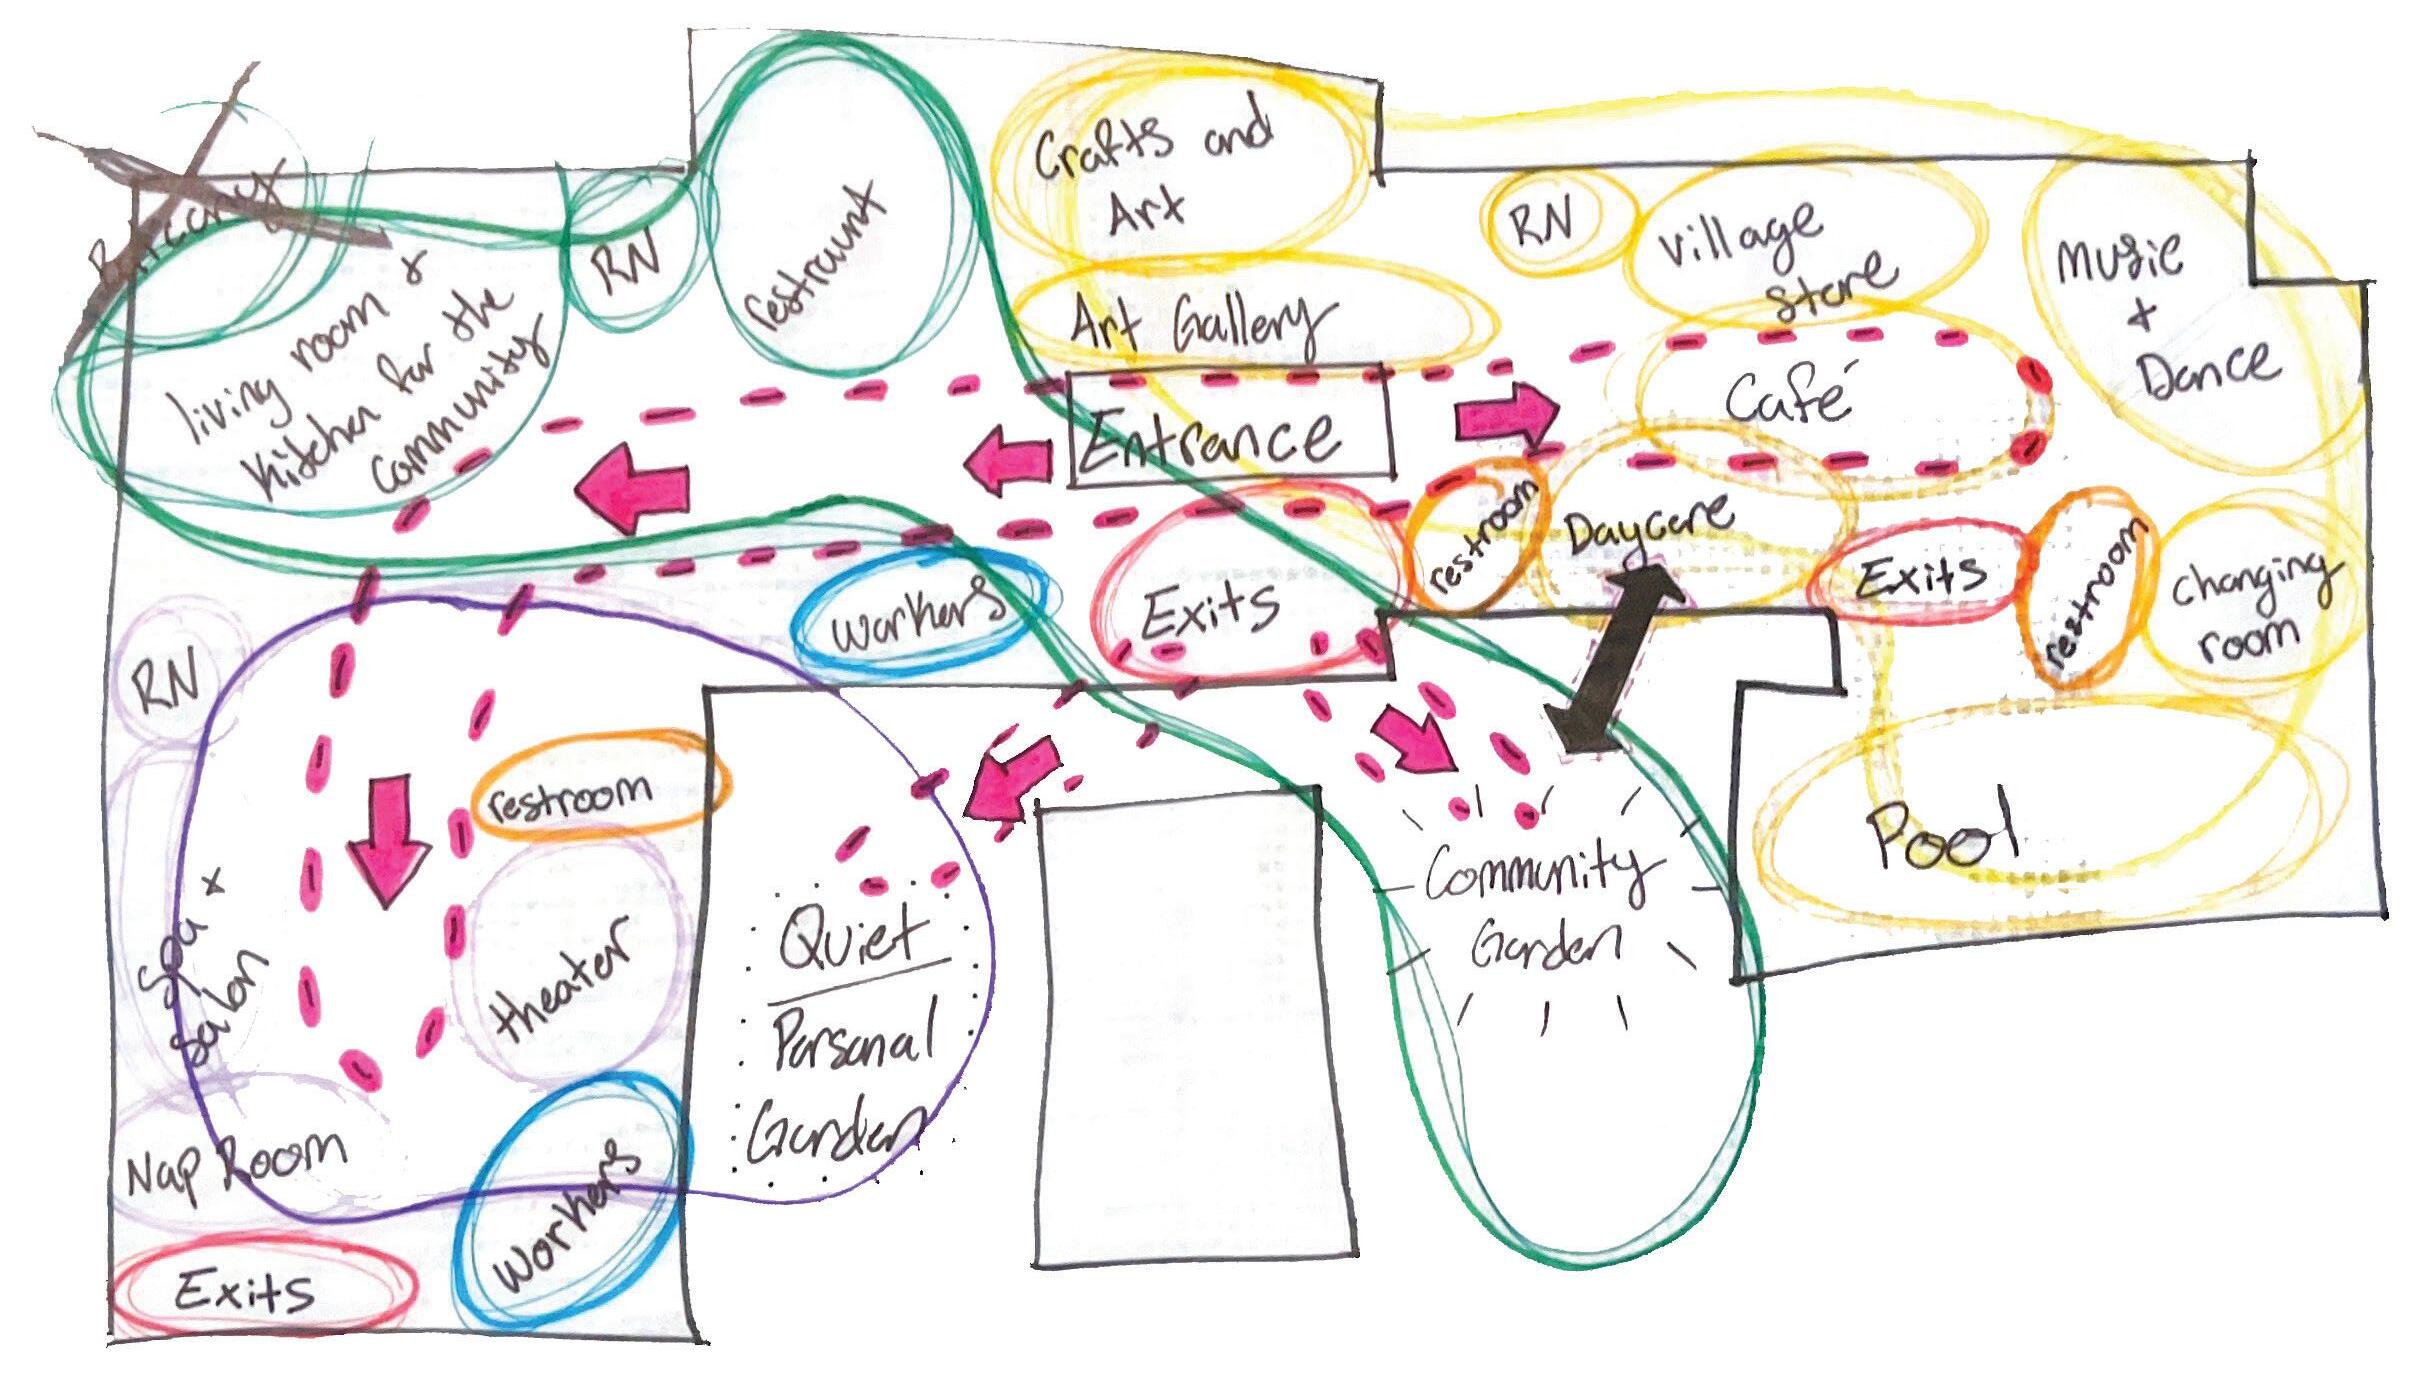 Balcony
living room +
Kitchen for the
community
RN
restraunt
Crafts and
Art
Art Gallery
RN
Village
Store
Music
+
Dance
Café
Entrance
restroom
Daycare
Exits
restroom
Changing
room
Workers
Exits
RN
restroom
Spa +
Salon
theater
Quiet
Personal
Garden
Community
Garden
Pool
Nap Room
Workers
Exits